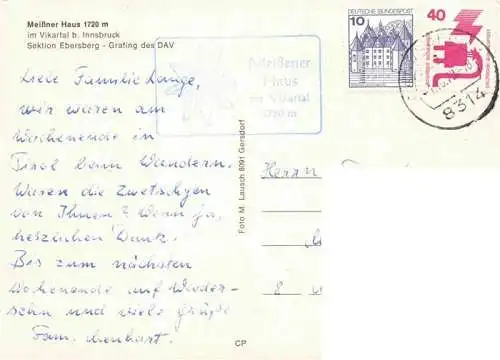 Meißner Haus 1720 m
im Vikartal b. Innsbruck
Sektion Ebersberg - Grafing des DAV
Liebe Familie Lange,
wir waren am
Wochenende in
Tirol beim Wandern.
Waren die Zwetschgen
von Ihnen? Wenn ja,
herzlichen Dank.
Bis zum nächsten
Wochenende auf Wieder-
sehn und viele Grüße
Fam.
Meißener
Haus
im Vikartal
1720 m
DEUTSCHE BUNDESPOST
10
40
8314
Foto M. Lausch 8091 Gersdorf
Herrn
CP